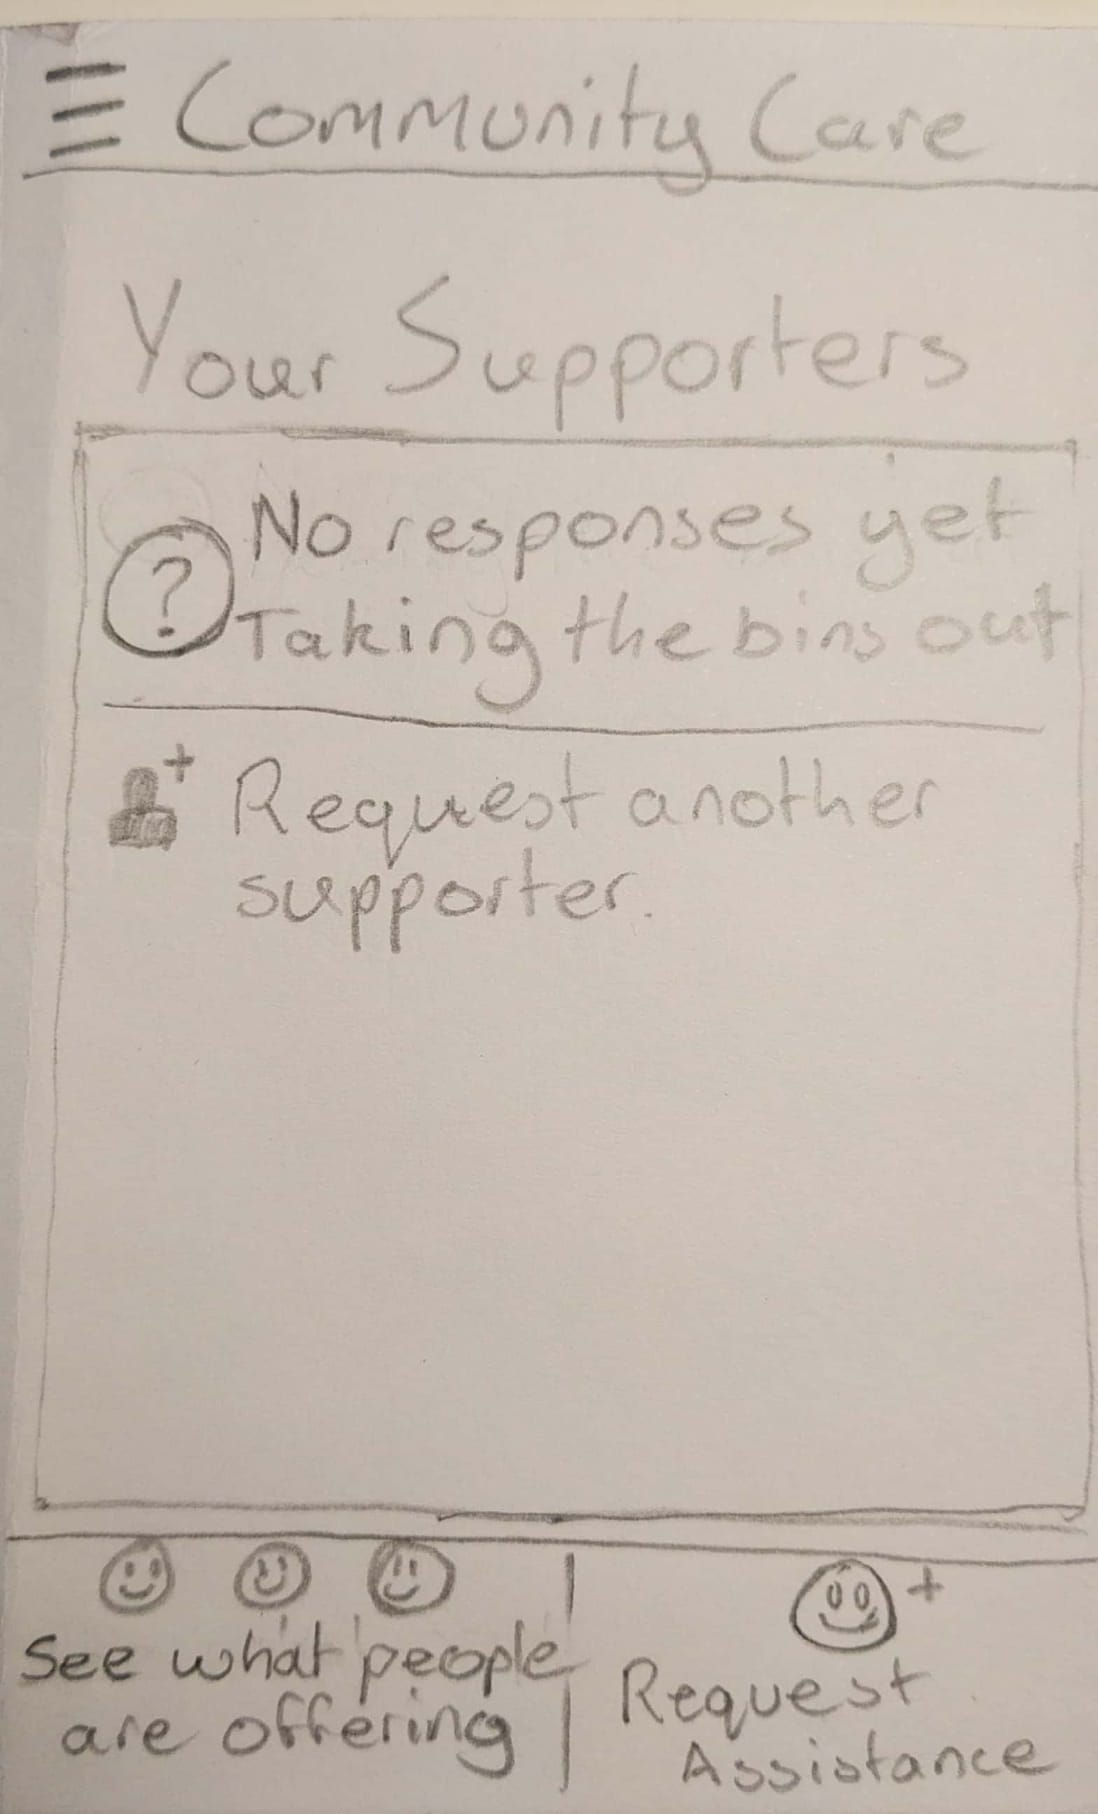 Community Care
Your Supporters
? No responses yet
Taking the bins out
+ Request another
supporter.
See what people
are offering
+
Request
Assistance